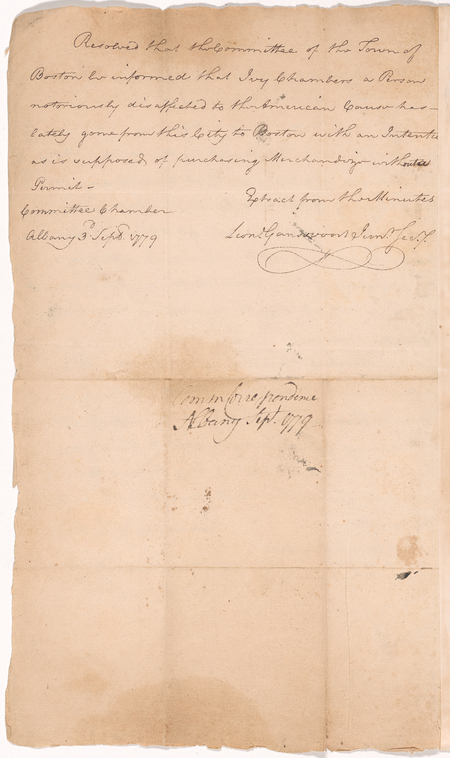 Resolved that the Committee of the Town of
Boston be informed that Ivey Chambers a Person
notoriously disaffected to the American Cause has
lately gone from this City to Boston with an Intention
as is supposed of purchasing Merchandize without a
Permit –
Extract from the Minutes
Committee Chamber
Albany 3d Septr. 1779
Leond. Gansevoort Junr. Secy.
Comm Correspondence
Albany Sept. 1779